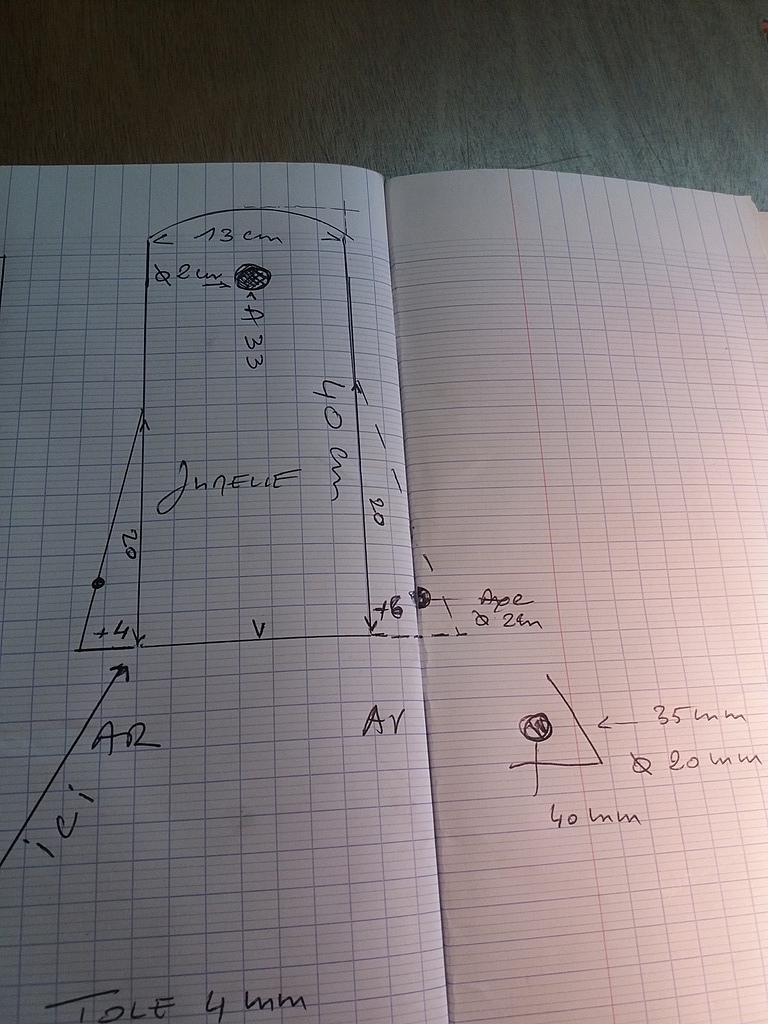 13 cm
Ø 2 cm
A 33
40 cm
JUMELLE
20
20
+4
+6
Axe
Ø 2cm
V
AR
AV
ici
35 mm
Ø 20 mm
40 mm
TOLE 4 mm